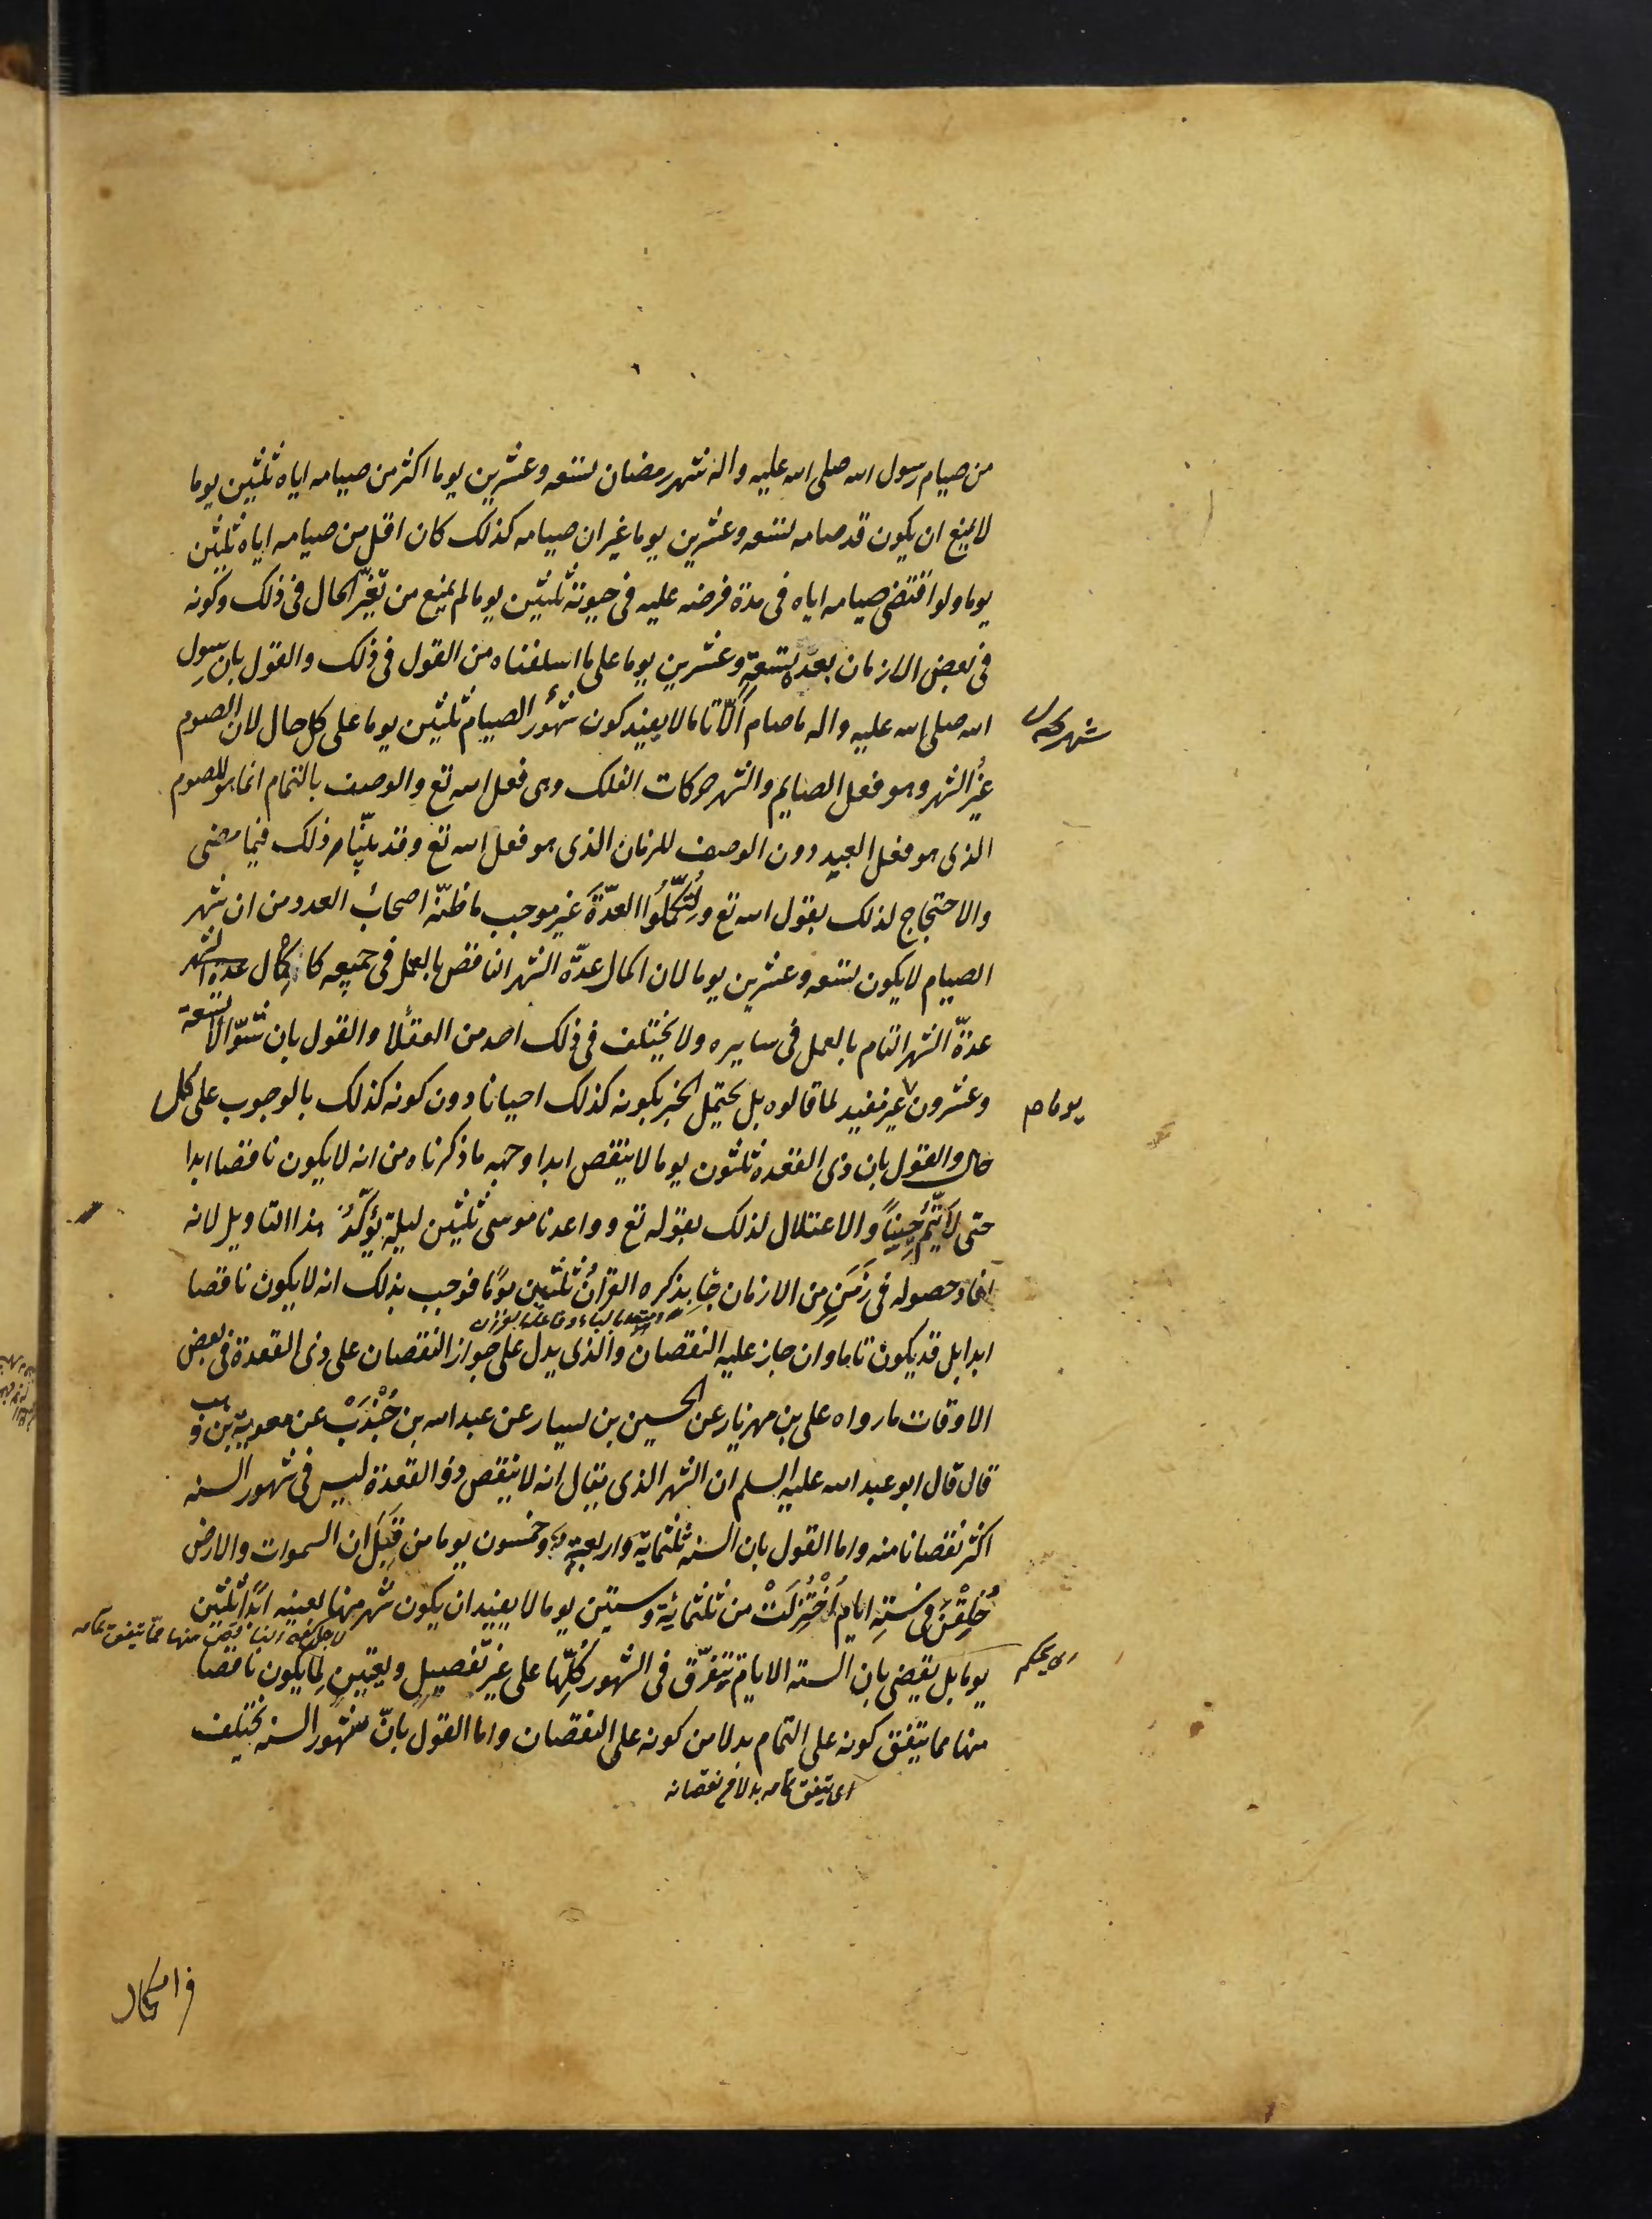 من صيام رسول الله صلى الله عليه واله شهر رمضان تسعه وعشرين يوما اكثر من صيامه اياه ثلثين يوما
لا يمنع ان يكون قد صامه تسعه وعشرين يوما غير ان صيامه كذلك كان اقل من صيامه اياه ثلثين
يوما ولو اقتضى صيامه اياه فى مدة فرضه عليه فى حيوته ثلثين يوما لم يمنع من تغيّر الحال فى ذلك وكونه
فى بعض الازمان بعده تسعة وعشرين يوما على ما اسلفناه من القول فى ذلك والقول بان رسول
الله صلى الله عليه واله ما صام الّا تاما لا يفيد كون شهر الصيام ثلثين يوما على كل حال لان الصوم
غيرُ الشهر وهو فعل الصايم والشهر حركات الفلك وهى فعل الله تع والوصف بالتمام انما هو للصوم
الذى هو فعل العبد دون الوصف للزمان الذى هو فعل الله تع وقد بيّنّا ذلك فيما مضى
والاحتجاج لذلك بقول الله تع ولِتُكمِّلُوا العدّةَ غير موجب ما ظنّه اصحابُ العدد من ان شهر
الصيام لا يكون تسعه وعشرين يوما لان اكمال عدّة الشهر الناقص بالعمل فى جميعه كاكمال عدة الشهر
عدّة الشهر التام بالعمل فى سايره ولا يختلف فى ذلك احد من العقلا والقول بان شوّالا تسعة
وعشرون غير مفيد لما قالوه بل يحتمل الخبر بكونه كذلك احيانا دون كونه كذلك بالوجوب على كل
يوما م
حال والقول بان ذى القعده ثلثون يوما لا ينقص ابدا وجهه ما ذكرناه من انه لا يكون ناقصا ابدا
حتى لا يتمُ حيناً والاعتلال لذلك بقوله تع وواعدنا موسى ثلثين ليلة يؤكّدُ هذا التاويل لانه
افاد حصوله فى زَمَنٍ من الازمان جا بذكره القرآنُ ثلثين يومًا فوجب بذلك انه لا يكون ناقصا
ابدا بل قد يكون تاما وان جاز عليه النقصان والذى يدل على جواز النقصان على ذى القعدة فى بعض
الاوقات ما رواه على بن مهزيار عن الحسين بن يسار عن عبد الله بن جُنْدَبْ عن معوية بن وهب
قال قال ابو عبد الله عليه السلم ان الشهر الذى يقال انه لا ينقص ذو القعدة ليس فى شهور السنه
اكثر نقصانا منه واما القول بان السنه ثلثماية واربعة وخمسون يوما من قِبَل ان السموات والارض
خُلِقْنَ فى ستةِ ايام اُخْتُزِلَتْ من ثلثمائة وستين يوما لا يفيد ان يكون شهر منها بعينه ابدًا ثلثين
يوما بل يقضى بان الستة الايام تتفرّق فى الشهور كلّها على غير تفصيلٍ وتعيينٍ لما يكون ناقصا
اى يحكم
منها مما يتفق كونه على التمام بدلا من كونه على النقصان واما القول بانّ شهور السنه تختلف
اى يتفق تمامه بدلا من نقصانه